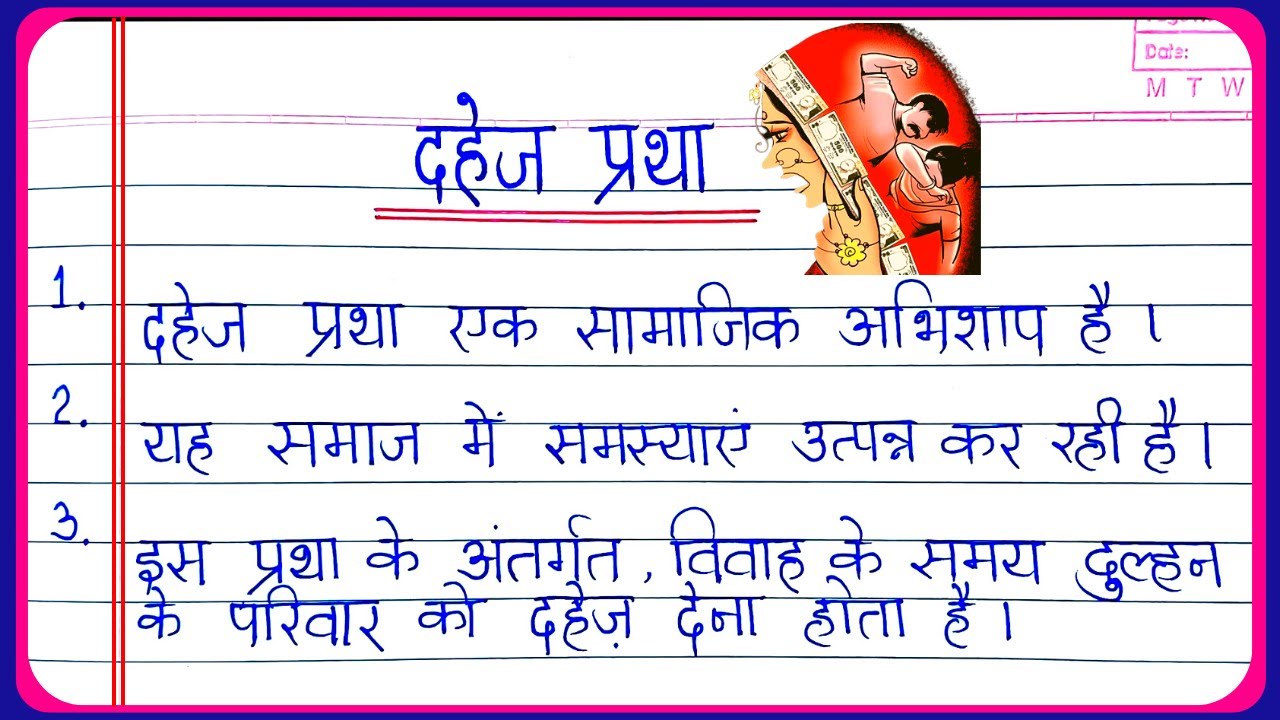 Date:
M T W
दहेज प्रथा
1. दहेज प्रथा एक सामाजिक अभिशाप है।
2. यह समाज में समस्याएं उत्पन्न कर रही है।
3. इस प्रथा के अंतर्गत, विवाह के समय दुल्हन
के परिवार को दहेज़ देना होता है।